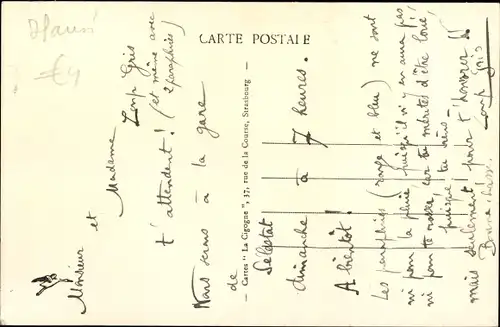 Hansi
€4
CARTE POSTALE
Monsieur et Madame
Loup Gris
t'attendent! (et même avec
2 parapluies)
Nous serons à la gare
de
Sélestat
dimanche à 7 heures.
A bientôt!
Les parapluies (rouge et bleu) ne sont
ni pour la pluie, puisqu'il n'y en aura pas
ni pour te rosser, car tu mérites d'être loué,
puisque tu viens
mais seulement pour t'honorer!!
Loup gris
— Cartes "La Cigogne", 37, rue de la Course, Strasbourg —